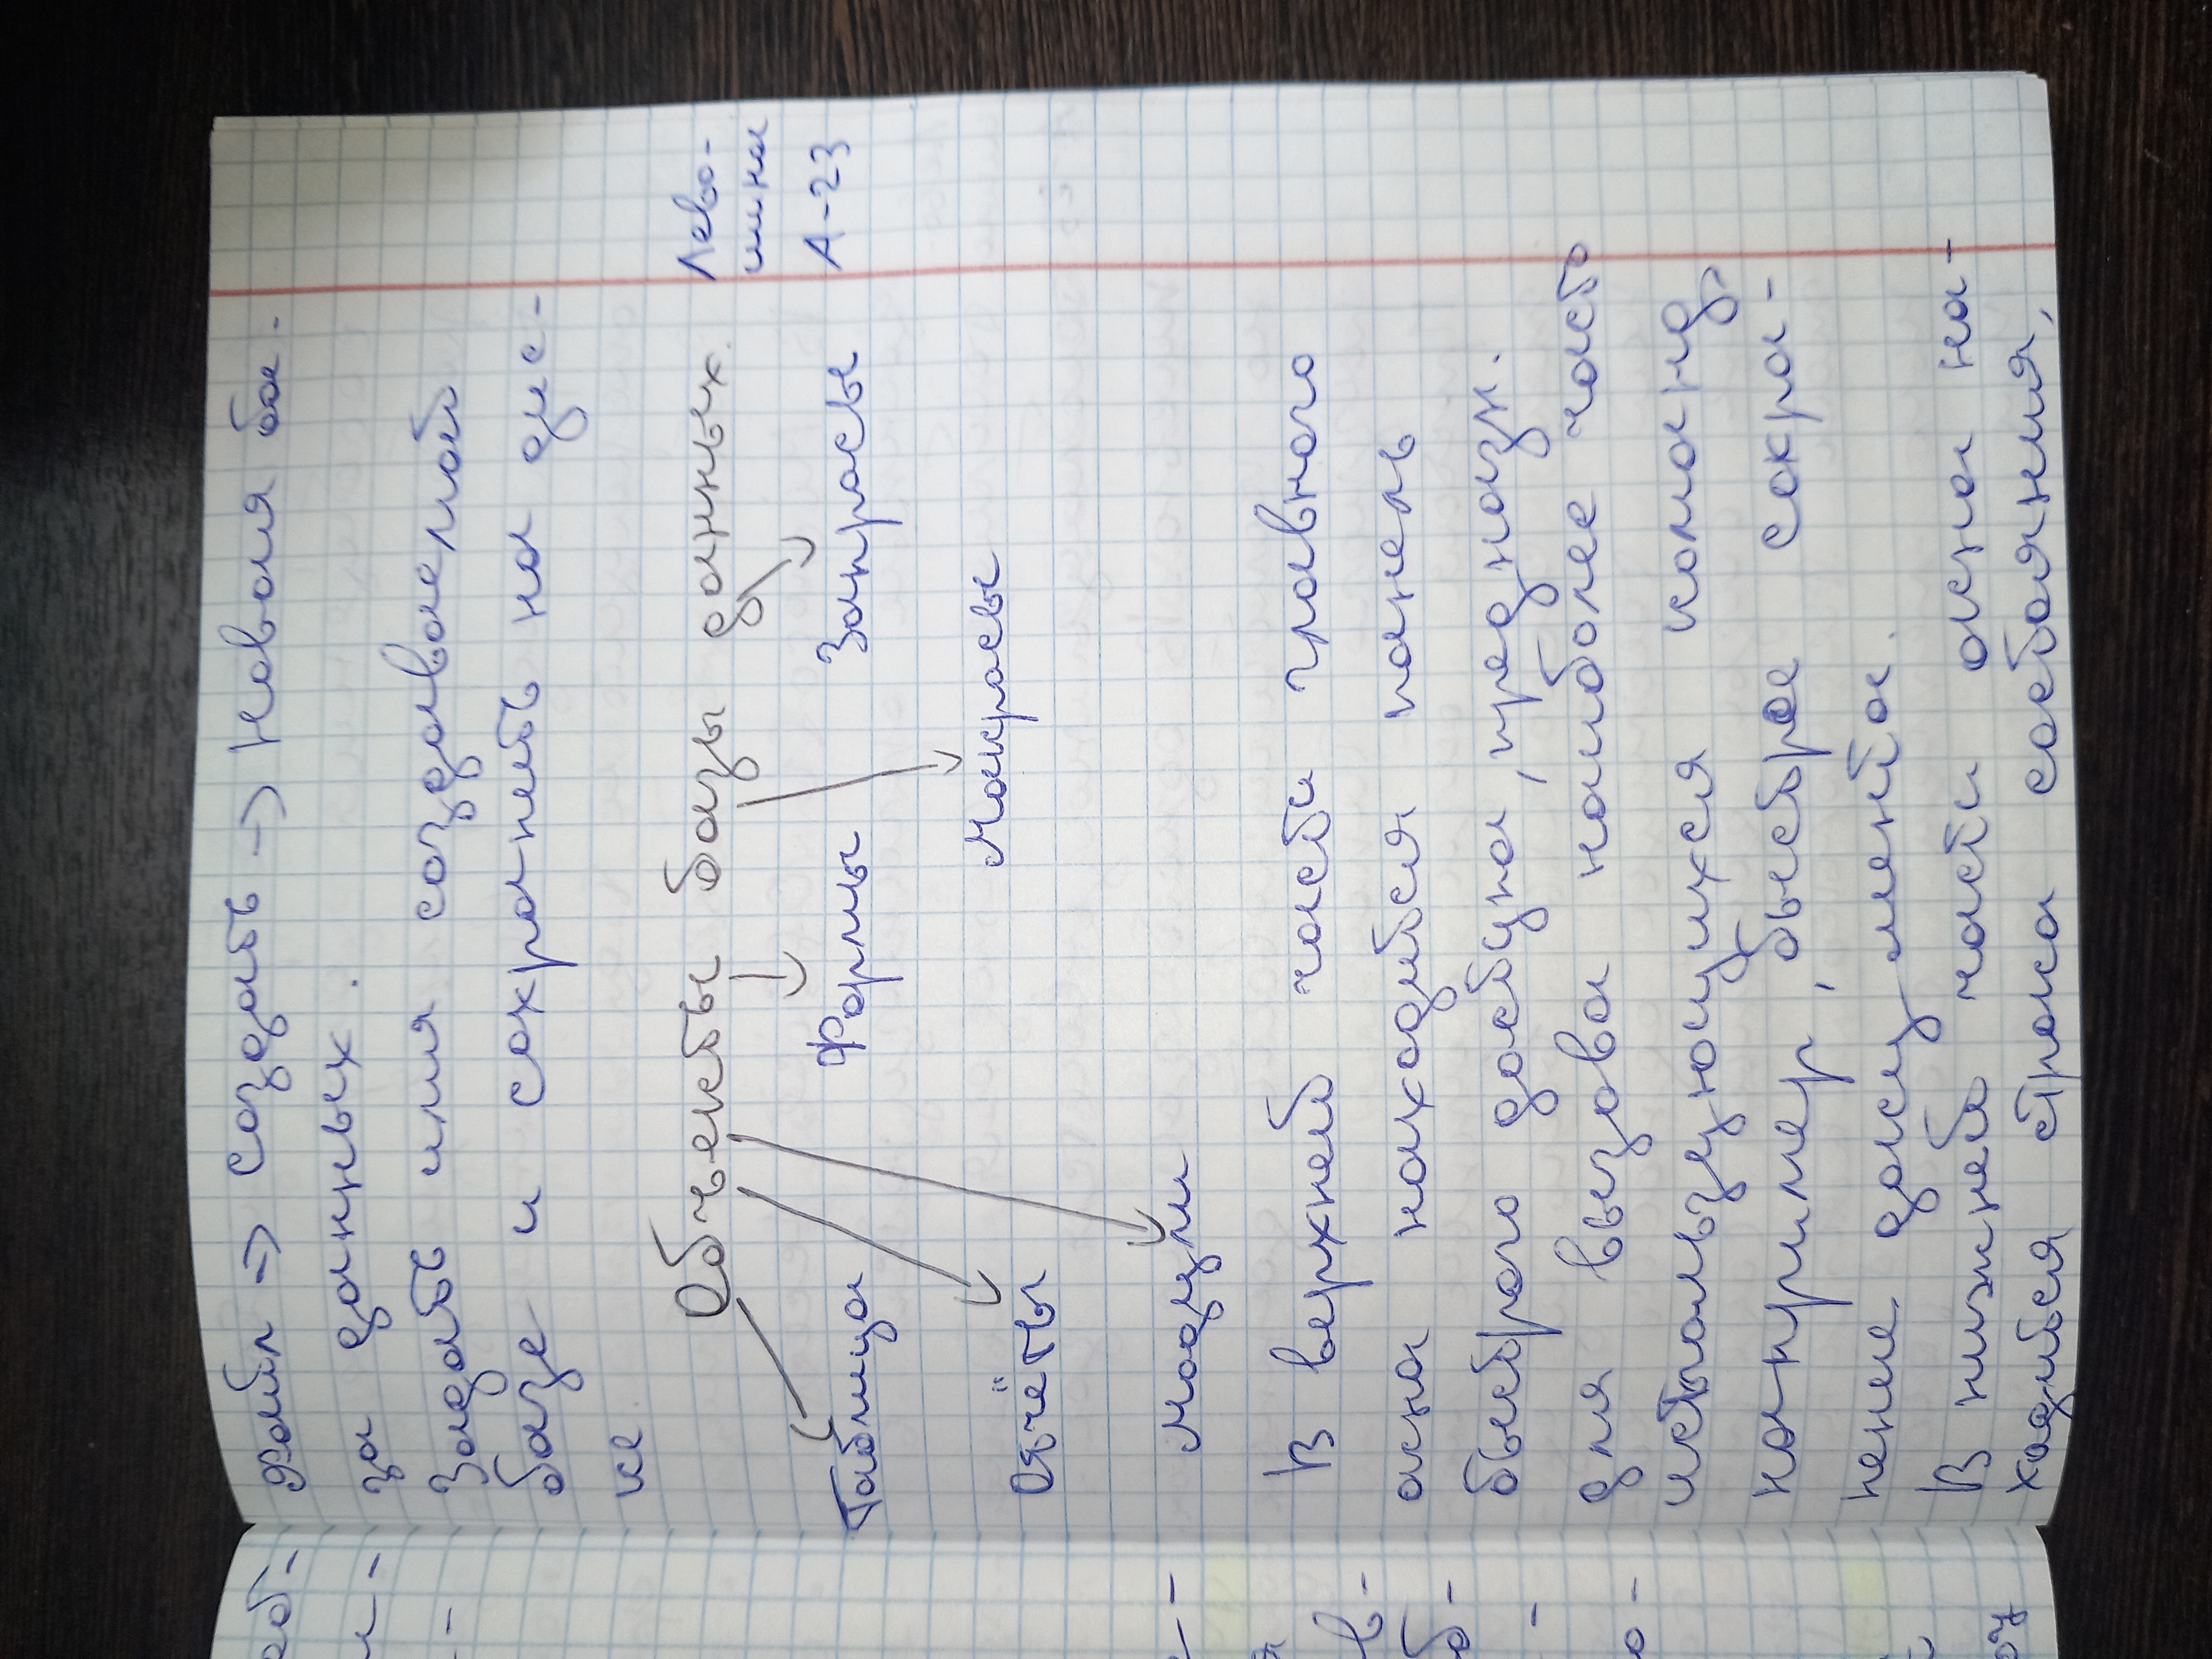 файл => создать -> новая ба-
за данных.
Задать имя создаваемой
базе и сохранить на дис-
ке
Объекты базы данных.
Лево-
шина
А-23
Таблица Формы Запросы
Отчёты Макросы
Модули
В верхней части главного
окна находится панель
быстрого доступа, предназн.
для вызова наиболее часто
использующихся команд,
например, быстрое сохра-
нение документа.
В нижней части окна на-
ходится строка состояния,